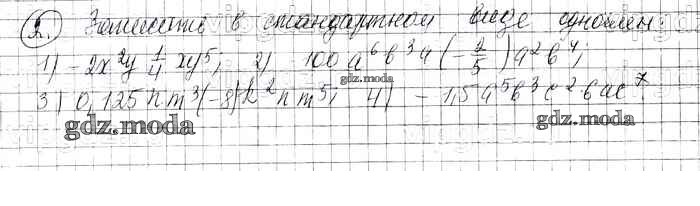 2. Записать в стандартном виде одночлен:
1) -2x²y 1/4 xy⁵; 2) 100a⁶b³a(-2/5)a²b⁴;
gdz.moda
3) 0,125nm³(-8)k²nm⁵; 4) -1,5a⁵b³c²bac⁷.
gdz.moda gdz.moda